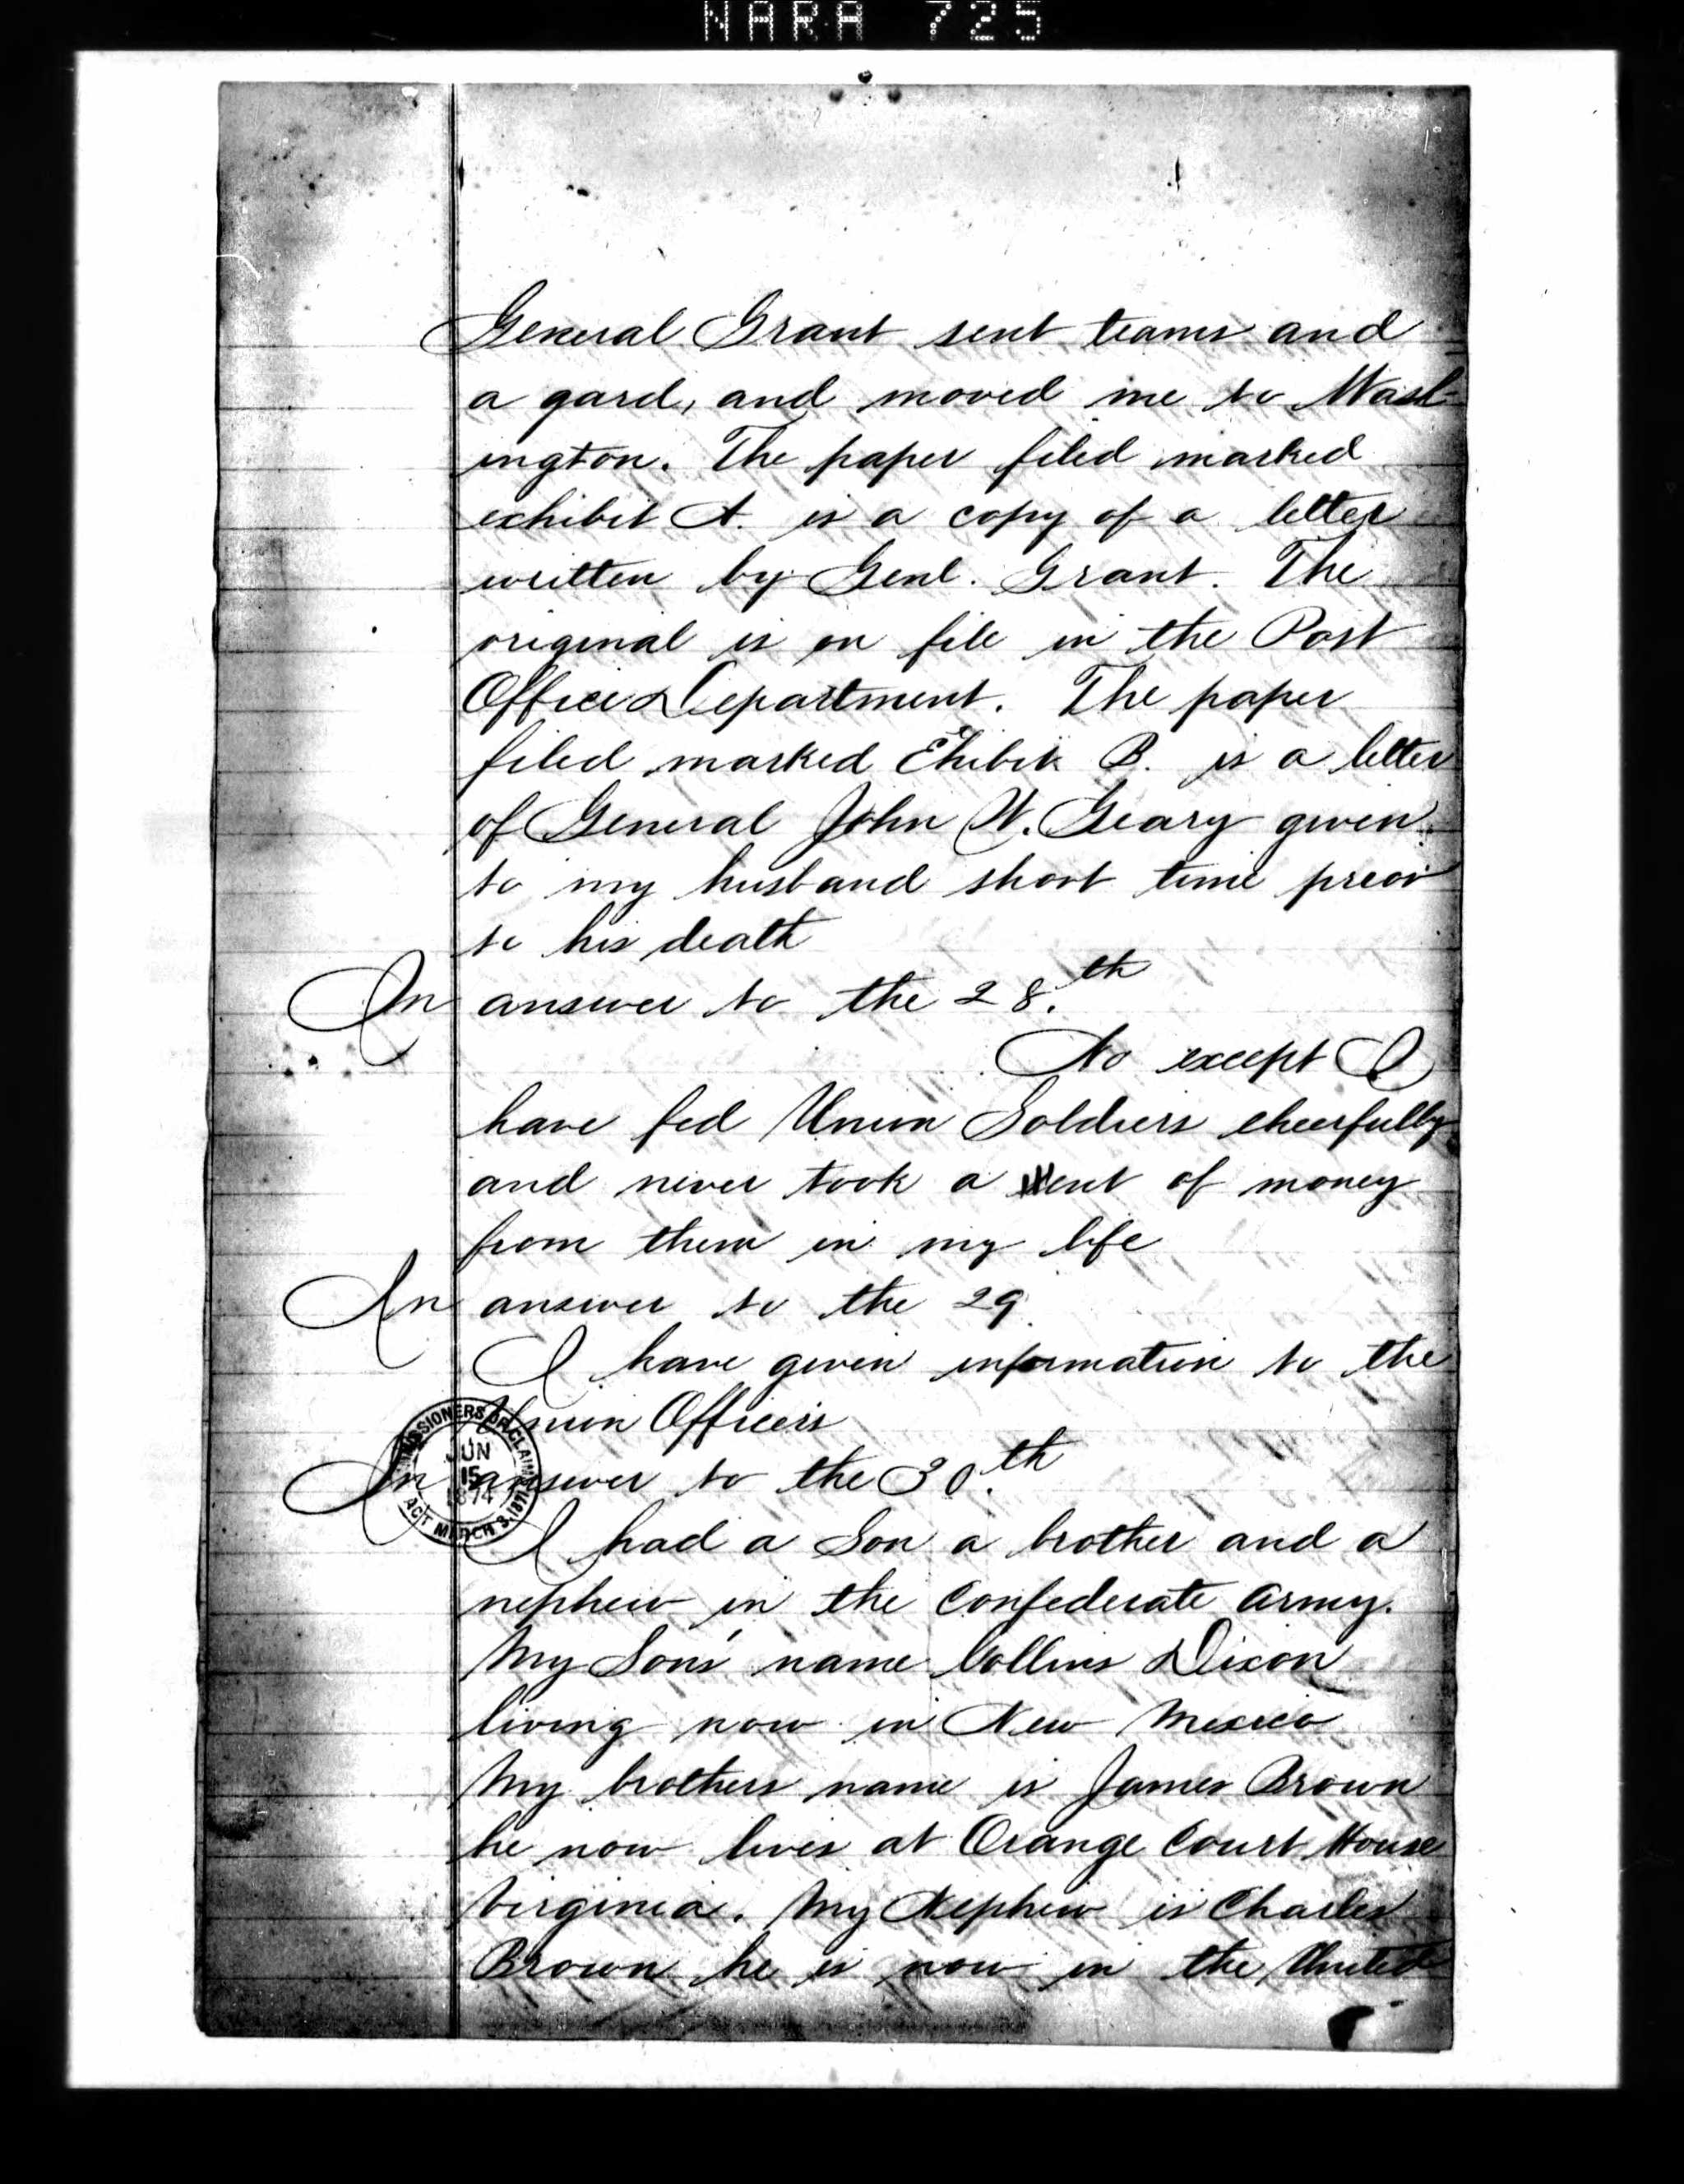 NARA 725
General Grant sent teams and
a gard, and moved me to Wash-
ington. The paper filed marked
exhibit A. is a copy of a letter
written by Genl. Grant. The
original is on file in the Post
Office Department. The paper
filed marked Ehibit B. is a letter
of General John W. Geary given
to my husband short time preor
to his death
In answer to the 28.th
No except I
have fed Union Soldiers cheerfully
and never took a cent of money
from them in my life
In answer to the 29
I have given information to the
Union Officers
In answer to the 30.th
COMMISSIONERS OF CLAIMS
JUN
15
1874
ACT MARCH 3. 1871
I had a Son a brother and a
nephew in the Confederate Army.
My Son's name Collins Dixon
living now in New Mexico
My brothers name is James Brown
he now lives at Orange Court House
Virginia. My Nephew is Charles
Brown he is now in the United